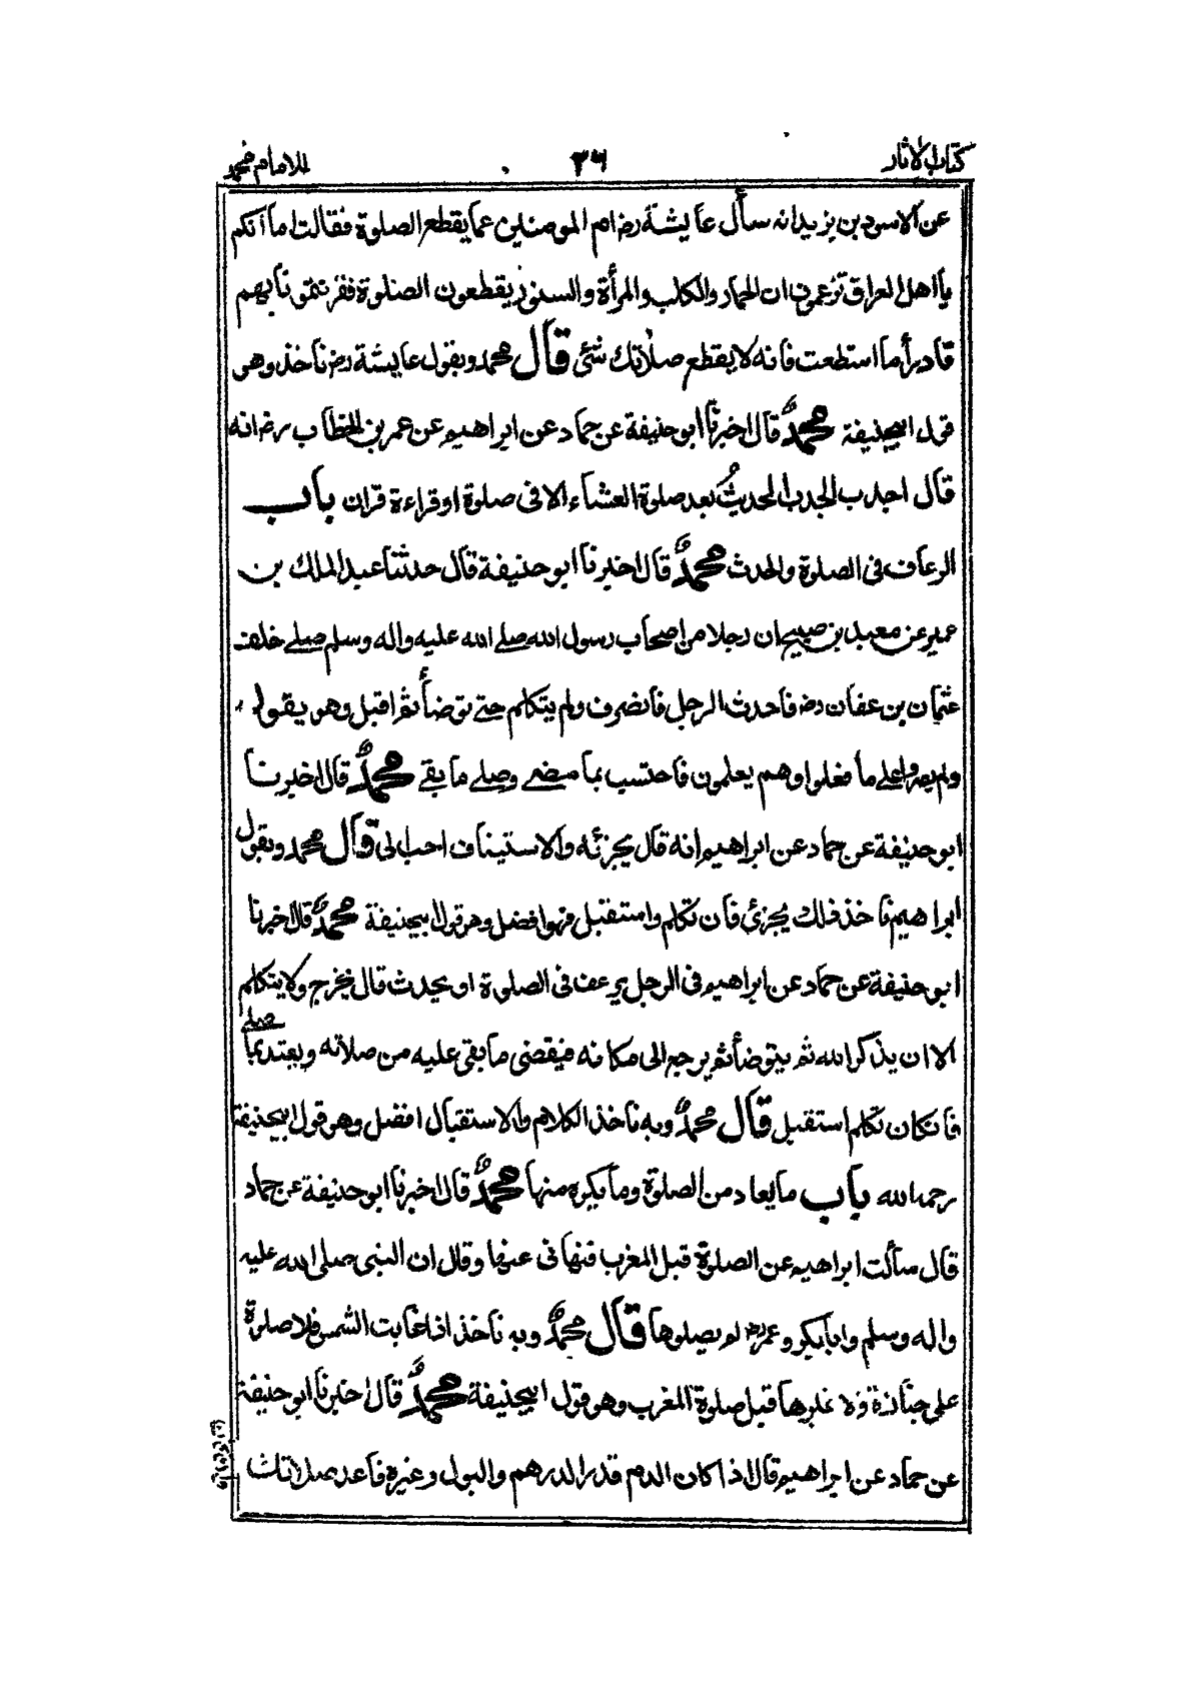 كتاب الاثار ٢٦ للامام محمد
عن الاسود بن يزيد انه سأل عايشة رضـ ام المومنين عما يقطع الصلوة فقالت اما انكم
يا اهل العراق تزعمون ان الحمار والكلب والمرأة والسنور يقطعون الصلوة فقرنتمونا بهم
فادرأ ما استطعت فانه لا يقطع صلاتك شئ قال محمد وبقول عايشة رضـ ناخذ وهو
قول ابيحنيفة محمدٌ قال اخبرنا ابو حنيفة عن حماد عن ابراهيم عن عمر بن الخطاب رضـ انه
قال اجدب الجدب الحديثُ بعد صلوة العشاء الا فى صلوة او قراءة قران باب
الرعاف فى الصلوة والحدث محمدٌ قال اخبرنا ابو حنيفة قال حدثنا عبد الملك بن
عمير عن معبد بن صبيح ان رجلا من اصحاب رسول الله صلے الله عليه واله وسلم صلے خلف
عثمان بن عفان رضـ فاحدث الرجل فانصرف ولم يتكلم حتے توضأ ثم اقبل وهو يقول
ولم يصروا علے ما فعلوا وهم يعلمون فاحتسب بما مضے وصلے ما بقے محمدٌ قال اخبرنا
ابو حنيفة عن حماد عن ابراهيم انه قال يجزئه والاستيناف احب الى قال محمد وبقول
ابراهيم ناخذ ذلك يجزئ فان تكلم واستقبل فهو افضل وهو قول ابيحنيفة محمدٌ قال اخبرنا
ابو حنيفة عن حماد عن ابراهيم فى الرجل يرعف فى الصلوة او يحدث قال يخرج ولا يتكلم
الا ان يذكر الله ثم يتوضأ ثم يرجع الى مكانه فيقضى ما بقى عليه من صلاته ويعتد بما صلے
فان كان تكلم استقبل قال محمدٌ وبه ناخذ الكلام والاستقبال افضل وهو قول ابيحنيفة
رحمه الله باب ما يعاد من الصلوة وما يكره منها محمدٌ قال اخبرنا ابو حنيفة عن حماد
قال سألت ابراهيم عن الصلوة قبل المغرب فنهانى عنها وقال ان النبى صلى الله عليه
واله وسلم وابابكر وعمر رضـ لم يصلوها قال محمدٌ وبه ناخذ اذا غابت الشمس فلا صلوة
على جنازة ولا غيرها قبل صلوة المغرب وهو قول ابيحنيفة محمدٌ قال اخبرنا ابو حنيفة
عن حماد عن ابراهيم قال اذا كان الدم قدر الدرهم والبول وغيره فاعد صلاتك